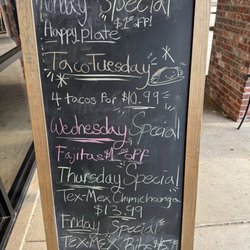 Monday Special
Happy Plate $1 off!
Taco Tuesday
4 tacos for $10.99
Wednesday Special
Fajitas $1 off
Thursday Special
Tex-Mex Chimichanga
$13.99
Friday Special
Tex-Mex Ribs